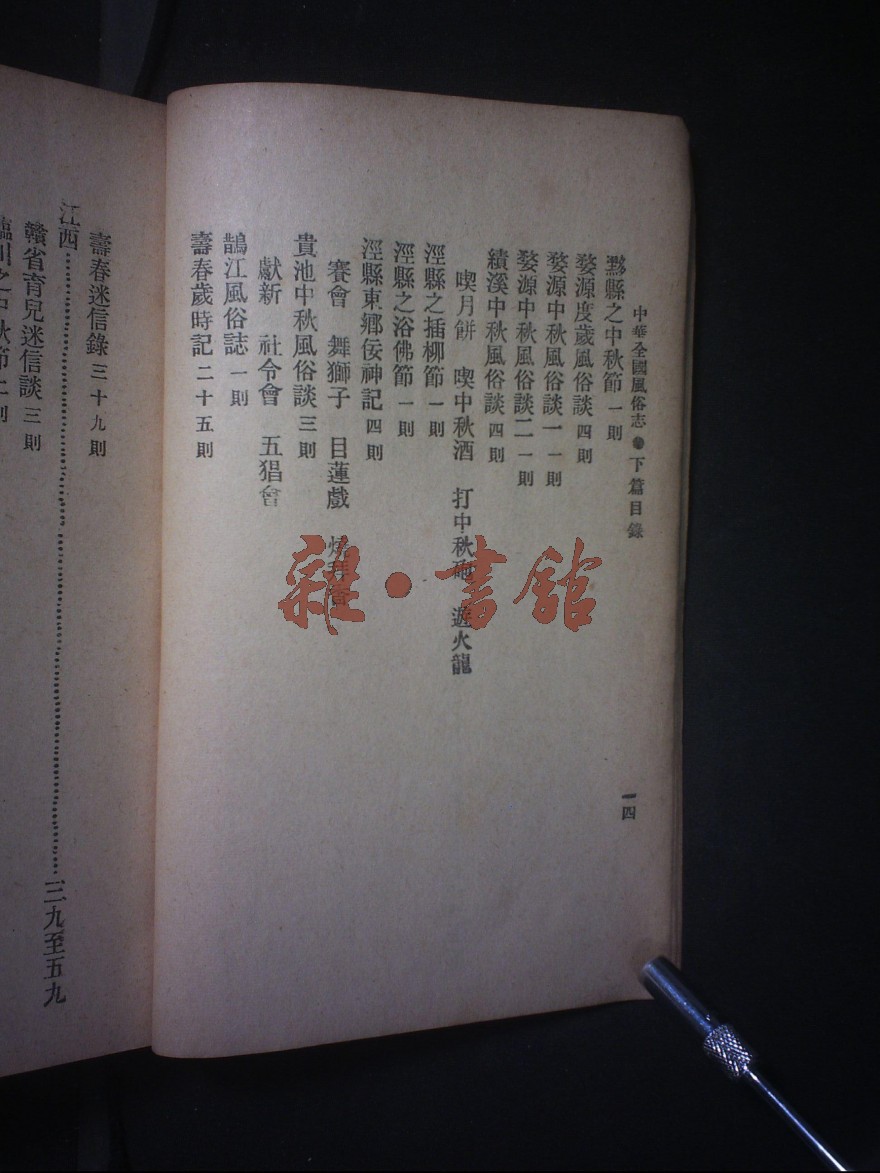 中華全國風俗志●下篇目錄
一四
黟縣之中秋節 一則
婺源度歲風俗談 四則
婺源中秋風俗談一 一則
婺源中秋風俗談二 一則
績溪中秋風俗談 四則
喫月餅 喫中秋酒 打中秋砲 遊火龍
涇縣之插柳節 一則
涇縣之浴佛節 一則
涇縣東鄉佞神記 四則
賽會 舞獅子 目蓮戲 燒拜香
貴池中秋風俗談 三則
獻新 社令會 五猖會
鵲江風俗誌 一則
壽春歲時記 二十五則
壽春迷信錄 三十九則
江西……三九至五九
贛省育兒迷信談 三則
臨川之中秋節 二則
雜·書館